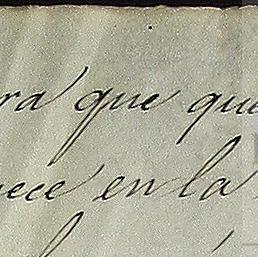 ra que que
ece en la